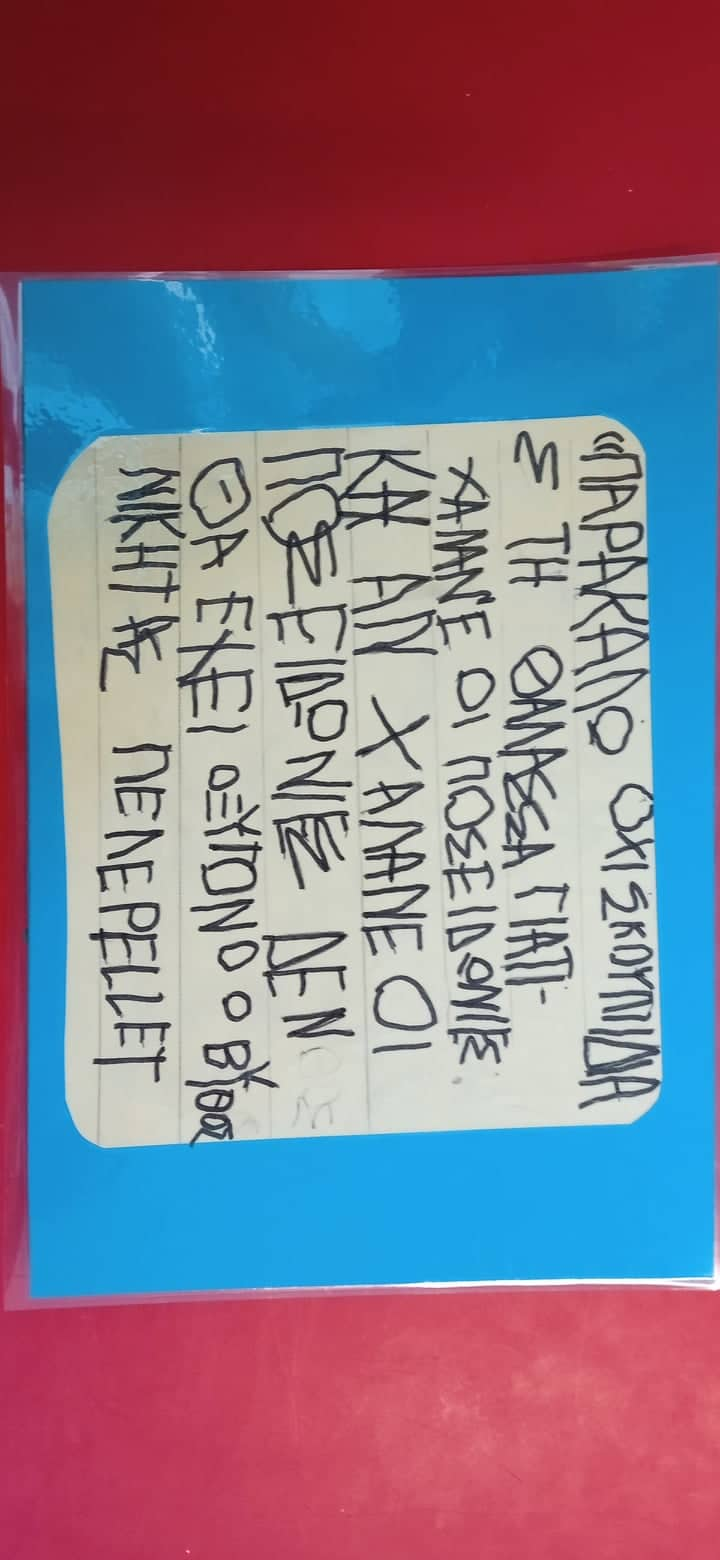 “ΠΑΡΑΚΑΛΟ ΟΧΙ ΣΚΟΥΠΙΔΑ
Σ ΤΗ ΘΑΛΑΣΣΑ ΓΙΑΤΙ-
ΧΑΛΑΝΕ ΟΙ ΠΟΣΕΙΔΟΝΙΕΣ.
ΚΑΙ ΑΝ ΧΑΛΑΝΕ ΟΙ
ΠΟΣΕΙΔΟΝΙΕΣ ΔΕΝ
ΘΑ ΕΧΕΙ ΟΞΥΓΟΝΟ Ο ΒΥΘΟΣ
ΝΙΚΗΤΑΣ ΠΕΛΕΡΕLLΕΤ